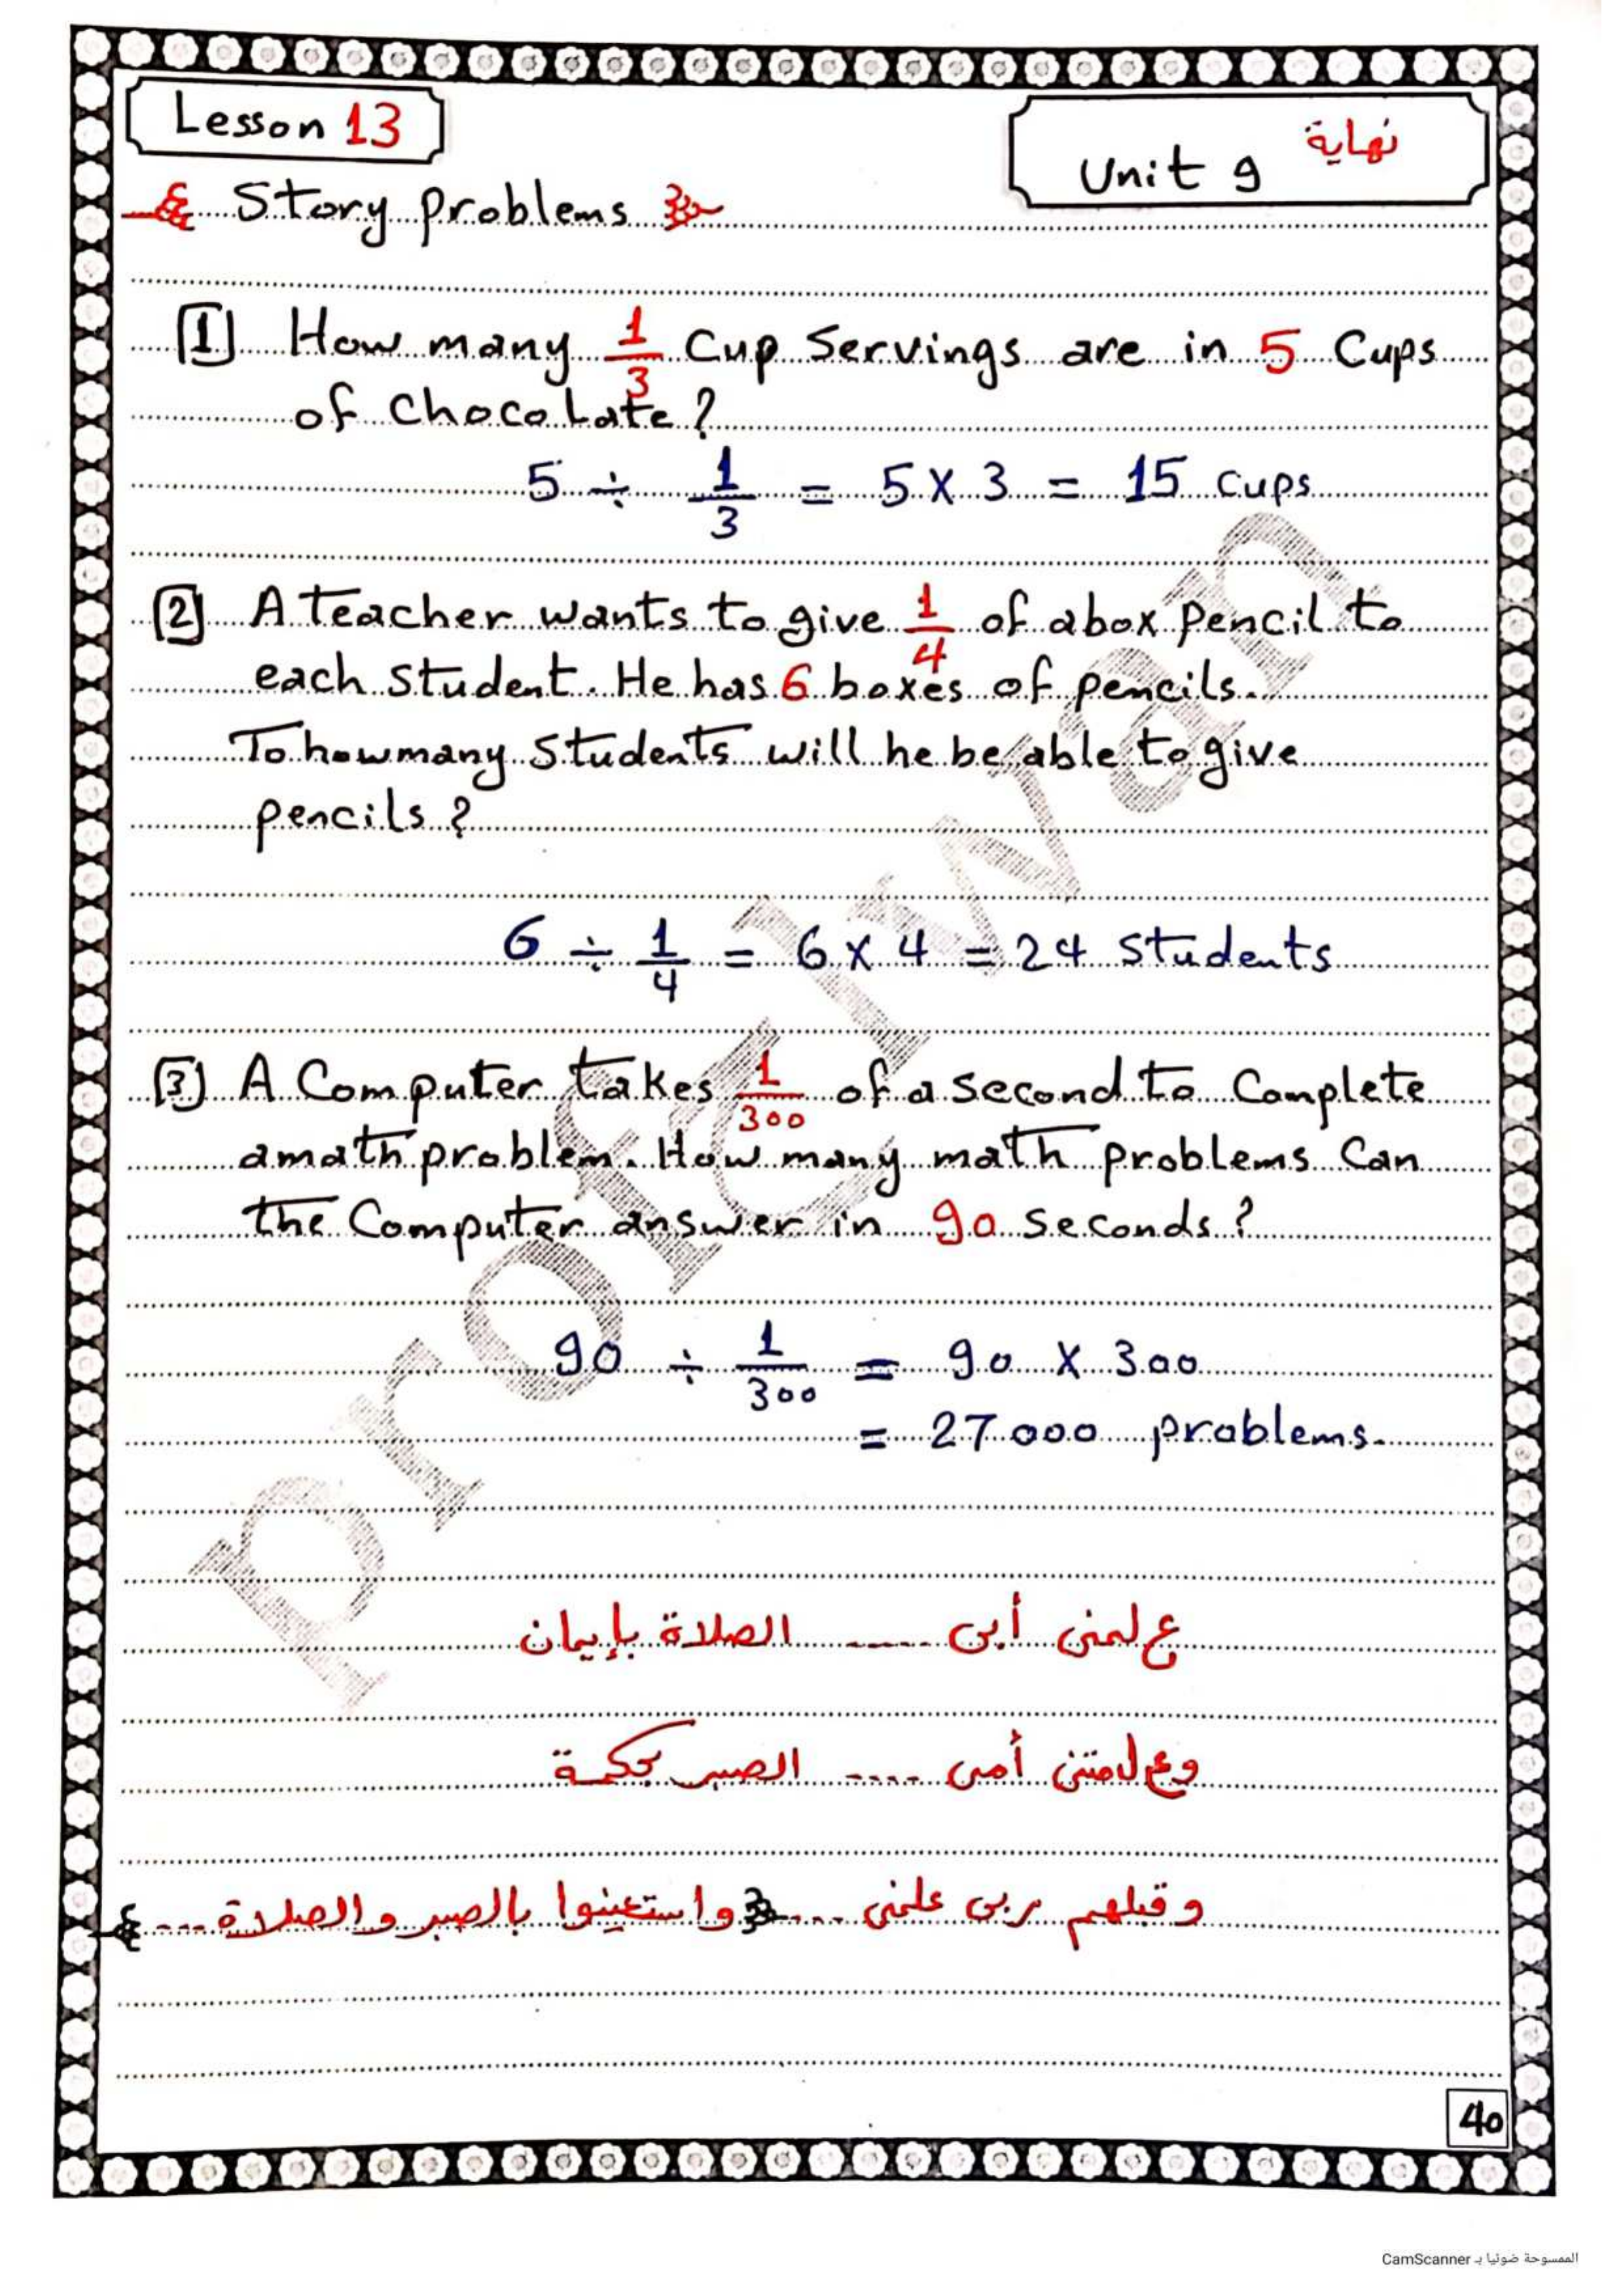 Lesson 13
نهاية
Unit 9
Story problems
1 How many 1/3 Cup Servings are in 5 Cups
of chocolate?
5 ÷ 1/3 = 5 x 3 = 15 cups
2 A teacher wants to give 1/4 of abox pencil to
each student. He has 6 boxes of pencils.
To howmany students will he be able to give
pencils?
6 ÷ 1/4 = 6 x 4 = 24 students
3 A Computer takes 1/300 of a second to Complete
amath problem. How many math problems Can
the Computer answer in 90 seconds?
90 ÷ 1/300 = 90 x 300
= 27000 problems.
علمنى أبى ---- الصلاة بإيمان
وعلمتنى أمى ---- الصبر بحكمة
وقبلهم ربى علمنى ---- واستعينوا بالصبر والصلاة ----
40
الممسوحة ضوئيا بـ CamScanner